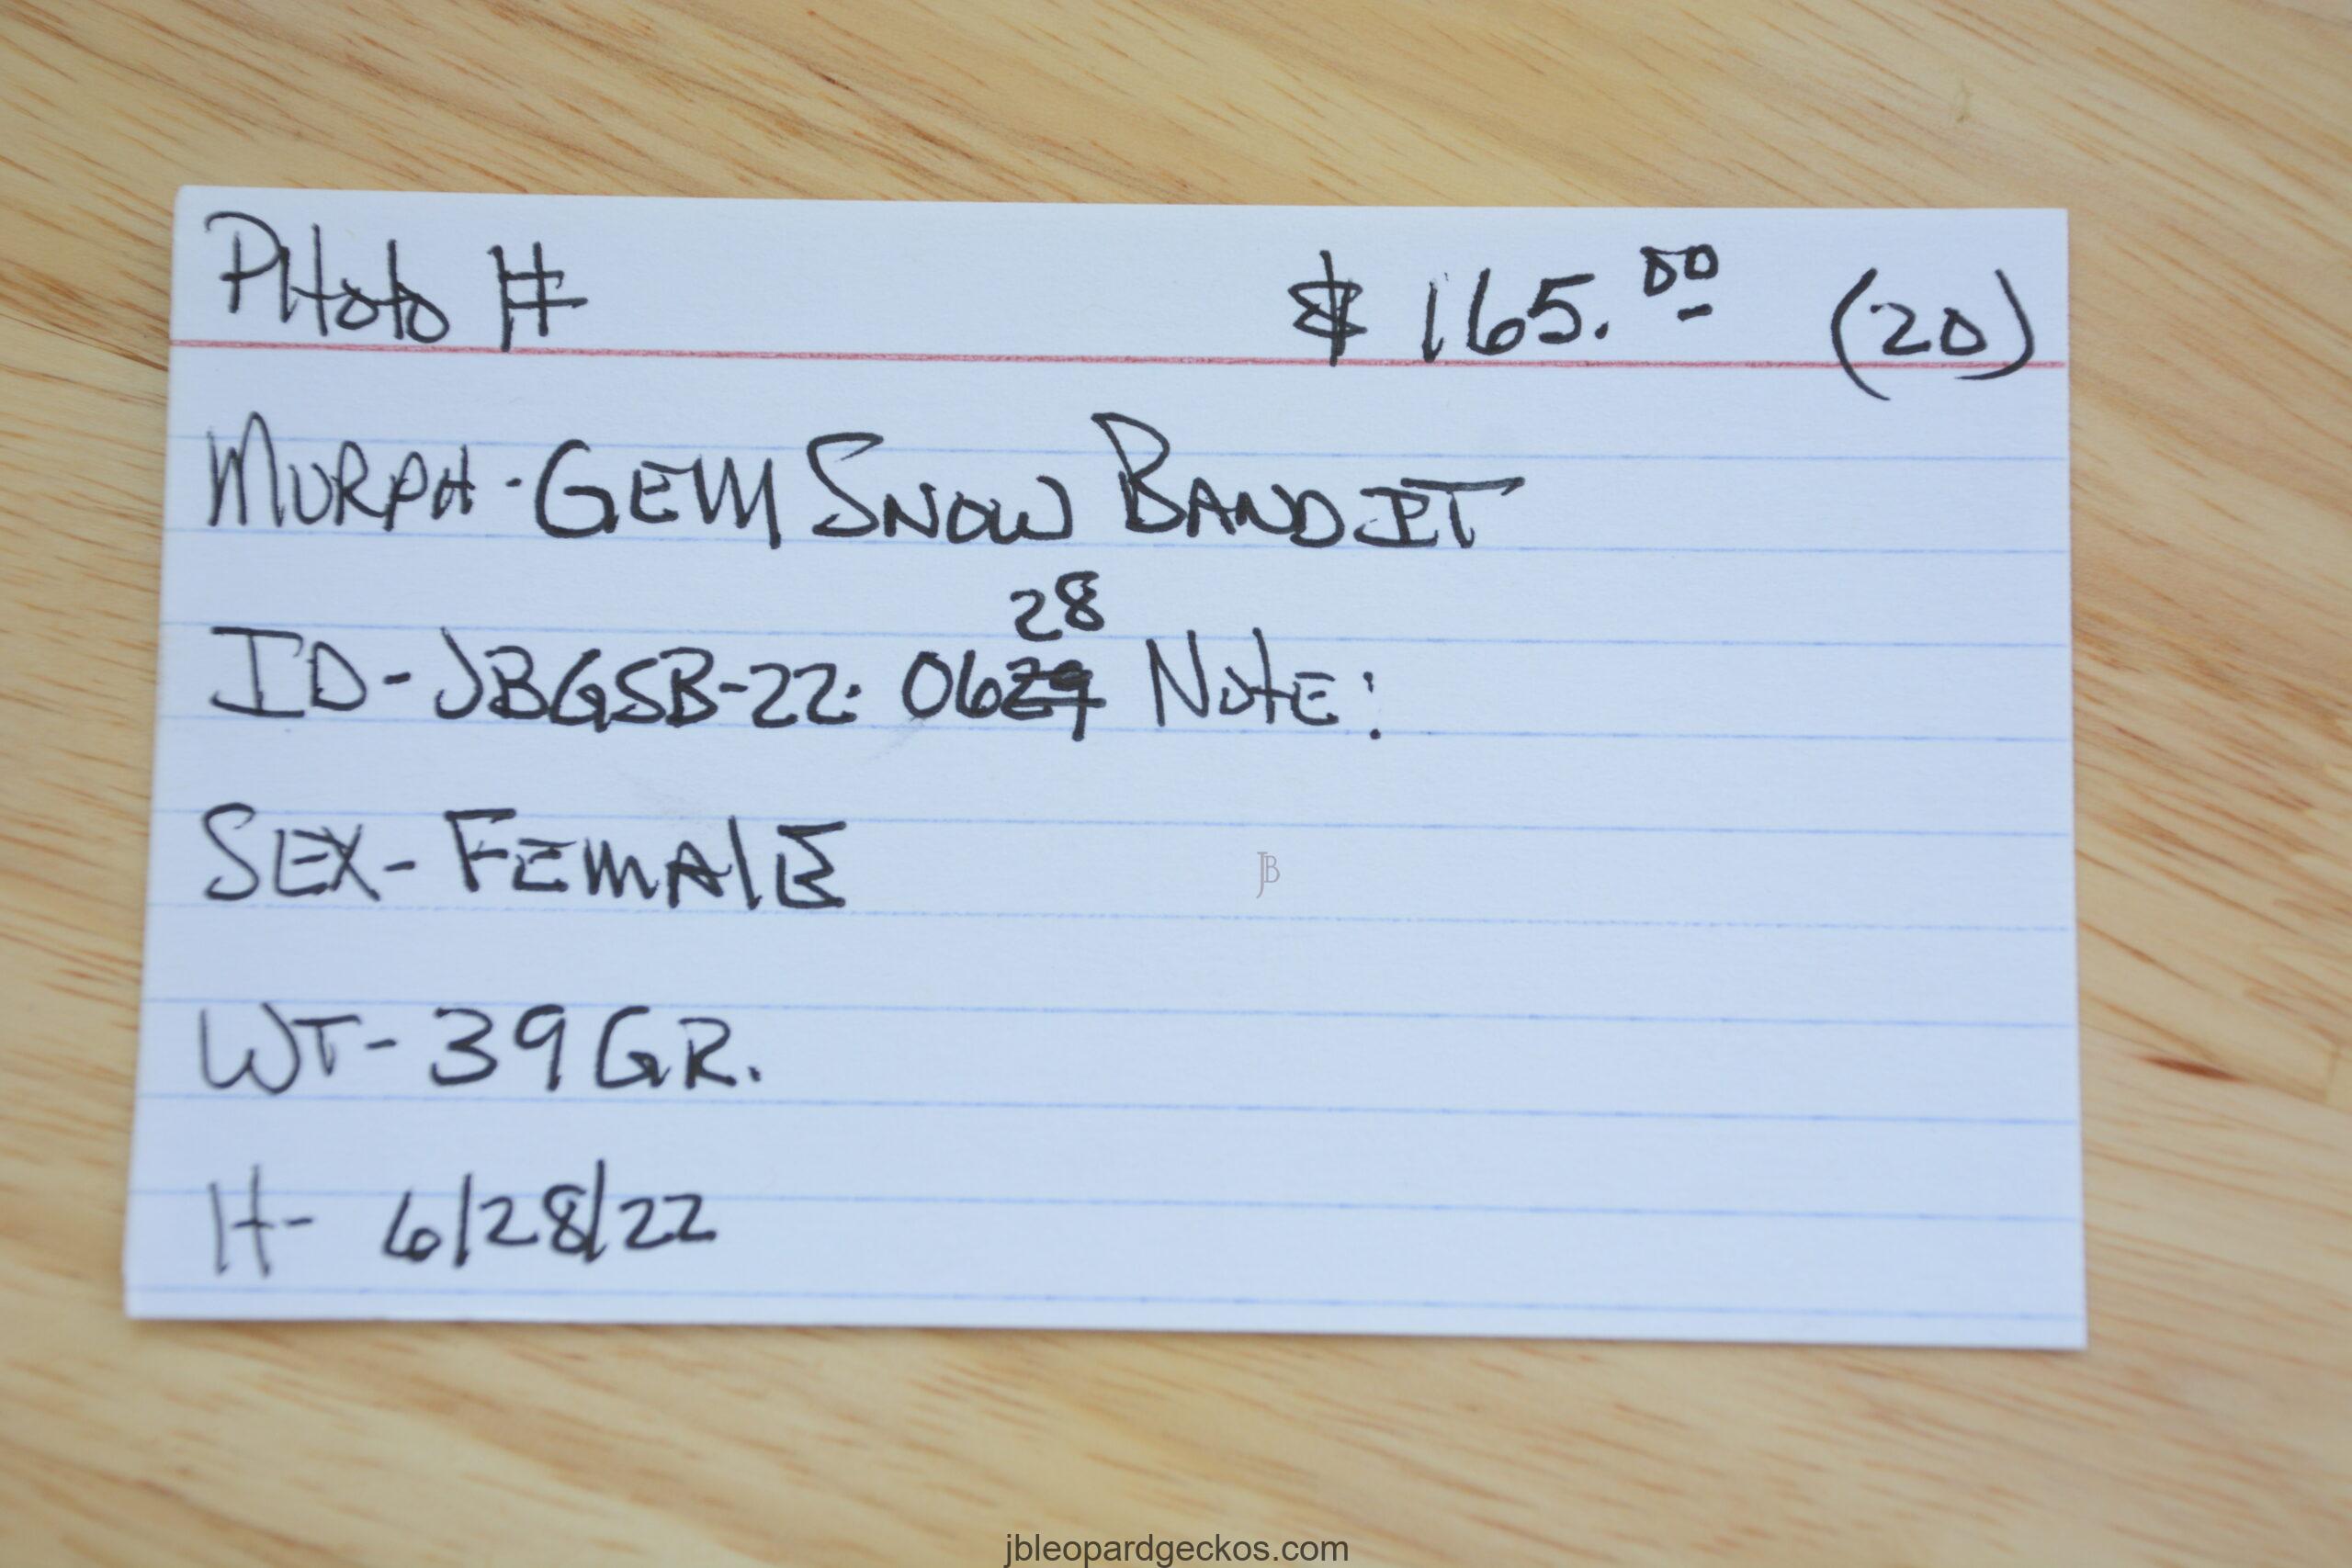 Photo # $165.00 (20)
MURPH - GEM SNOW BANDIT
28
ID - JBGSB-22. 0629 Note:
SEX - FEMALE
WT - 39 GR.
H - 6/28/22
JB
jbleopardgeckos.com